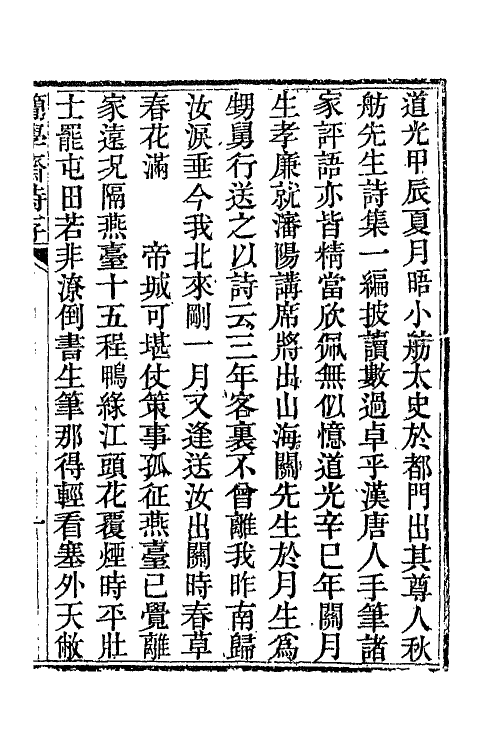 道光甲辰夏月晤小舫太史於都門出其尊人秋
舫先生詩集一編披讀數過卓乎漢唐人手筆諸
家評語亦皆精當欣佩無似憶道光辛巳年關月
生孝廉就瀋陽講席將出山海關先生於月生爲
甥舅行送之以詩云三年客裏不曾離我昨南歸
汝淚垂今我北來剛一月又逢送汝出關時春草
春花滿　　帝城可堪仗策事孤征燕臺已覺離
家遠况隔燕臺十五程鴨綠江頭花覆煙時平壯
士罷屯田若非潦倒書生筆那得輕看塞外天敝